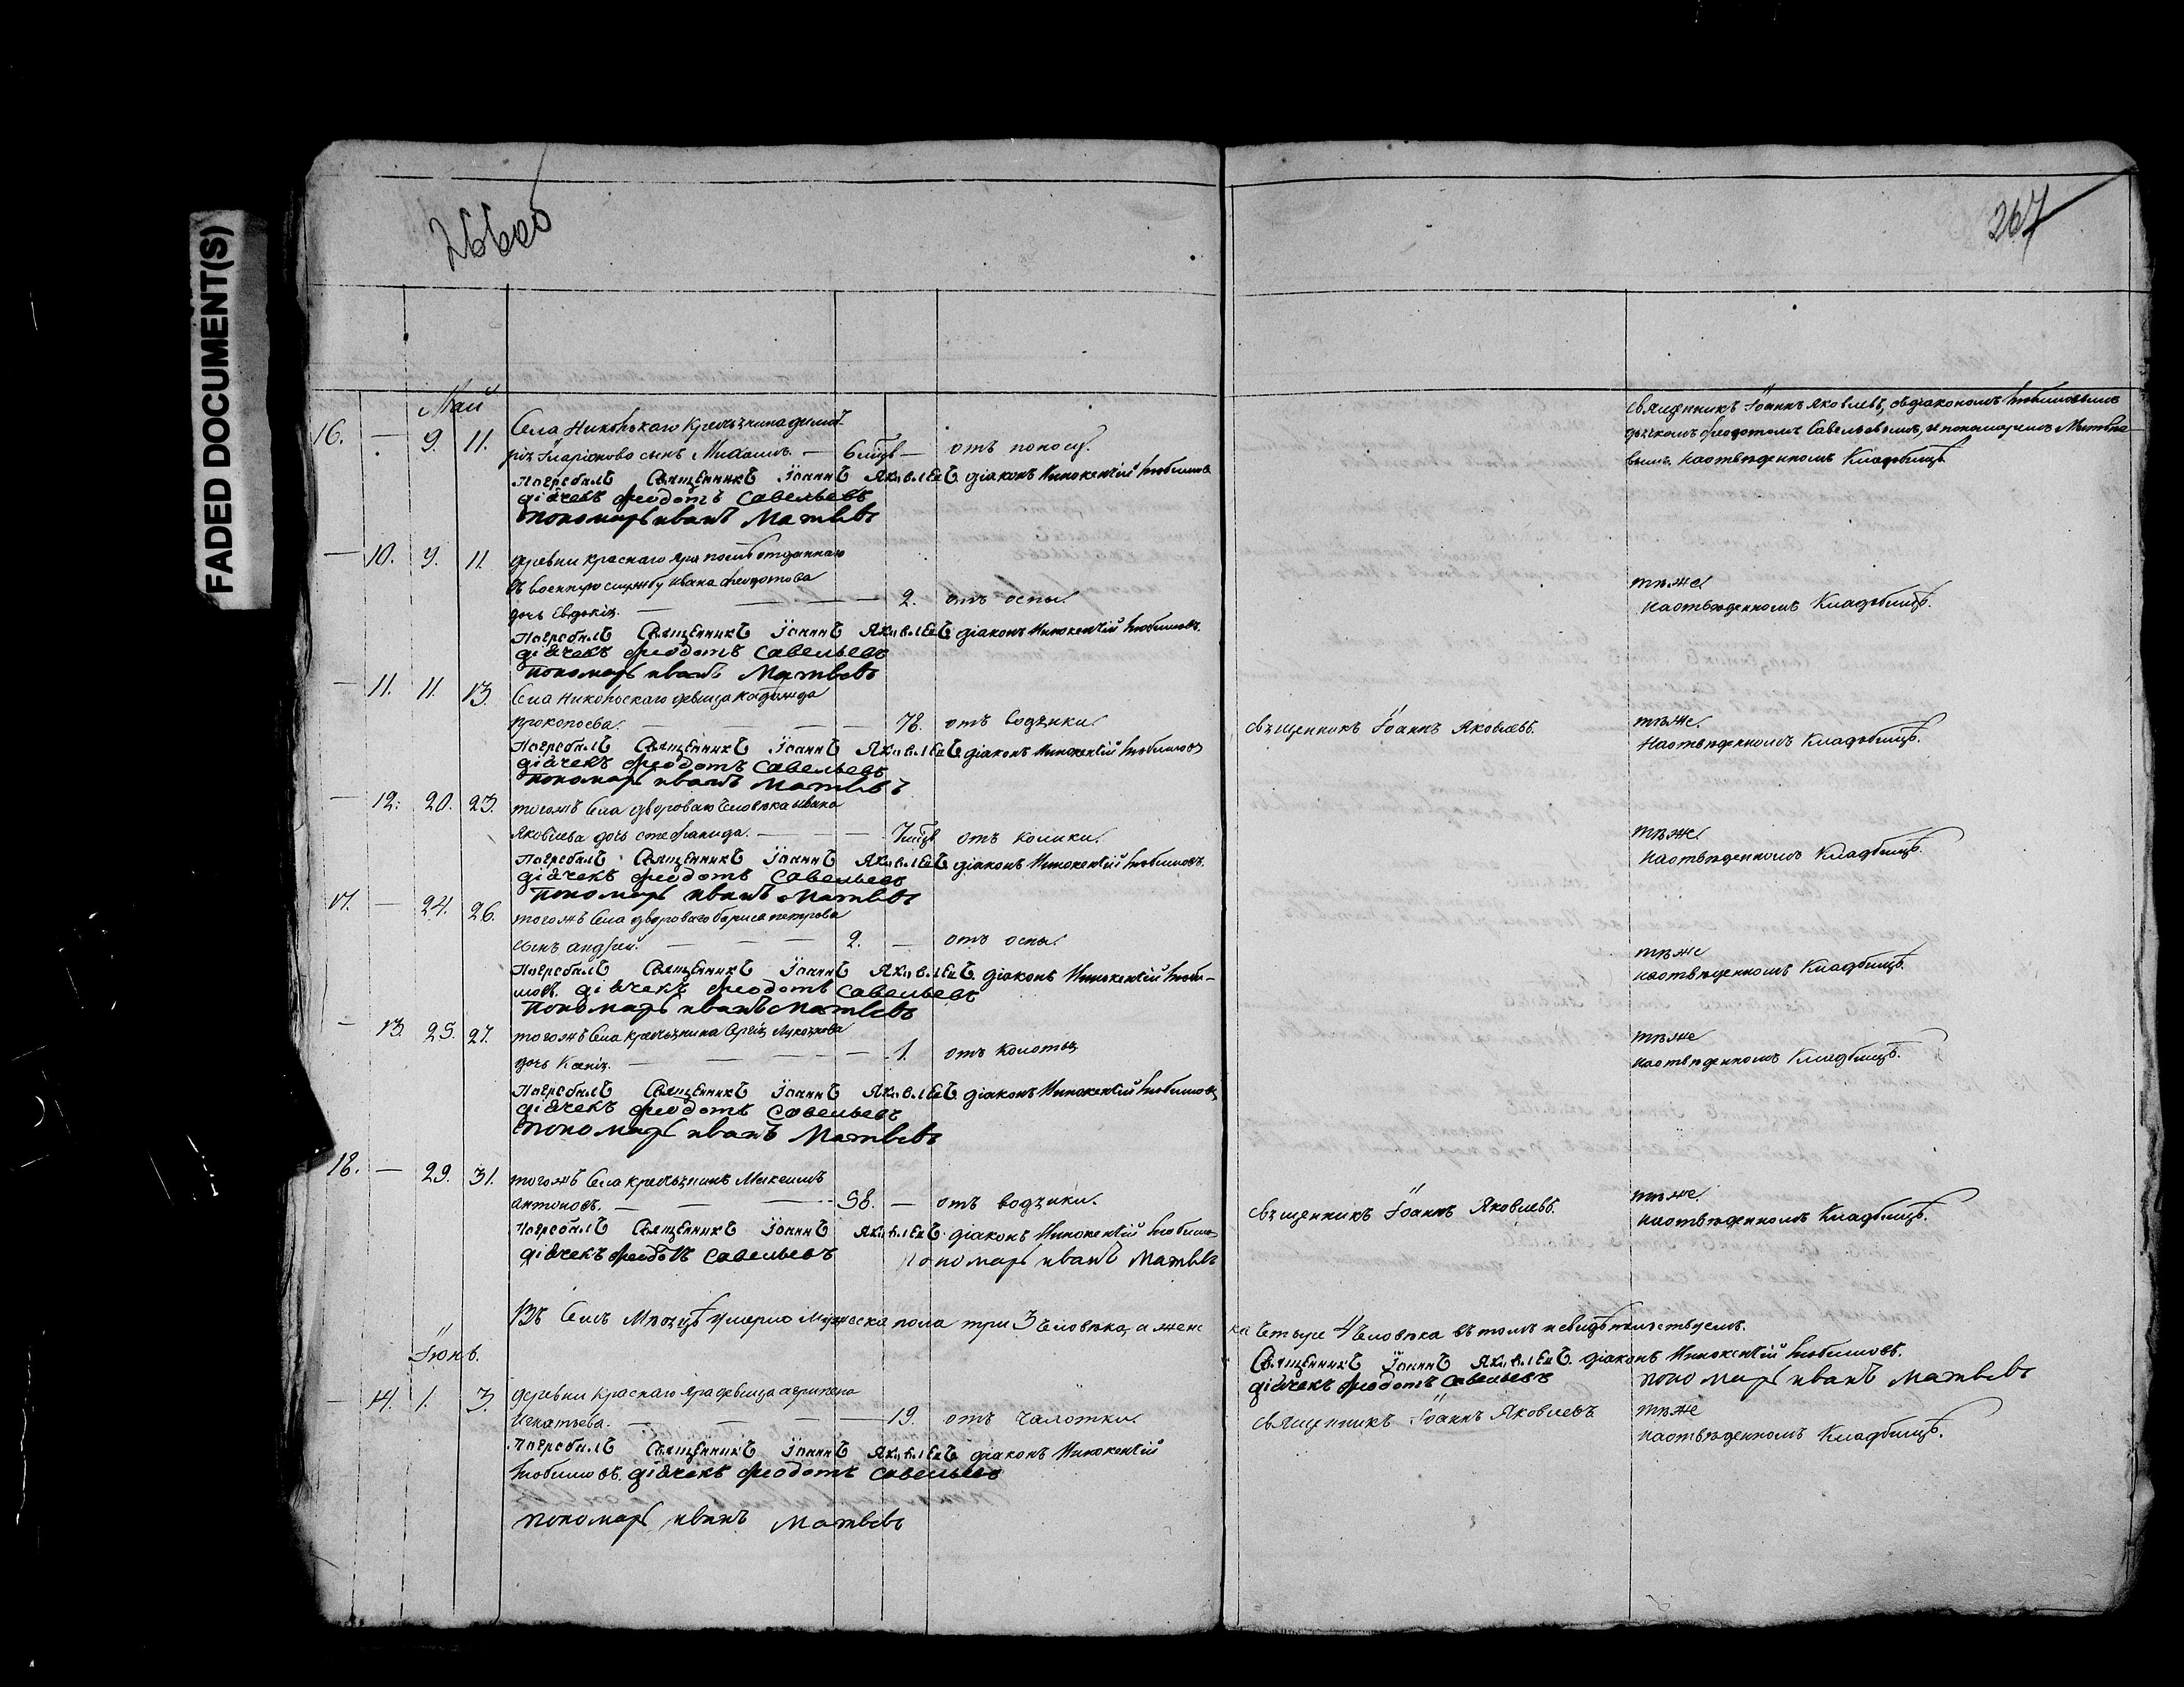 FADED DOCUMENT(S)
266об
267
Май
16. — 9. 11. Села Никольскаго Крестьянина димит
рія Иларіонова сынъ Михаилъ. — 6 мѣсяц — отъ поносу.
Погребалъ Священникъ Іоаннъ Яковлевъ діаконъ Иннокентій Любимовъ
дiячекъ Феодотъ Савельевъ
пономарь иванъ Матвѣевъ
священникъ Іоаннъ Яковлевъ, съ діакономъ Любимовымъ
дьячкомъ Феодотомъ Савельевымъ, и пономаремъ Матвѣе
вымъ. на отведенномъ Кладбищѣ
— 10. 9. 11. деревни Краснаго Яра отданнаго
въ военную службу ивана Феодотова
дочь Евдокія. — 2. отъ оспы.
Погребалъ Священникъ Іоаннъ Яковлевъ діаконъ Иннокентій Любимовъ.
дiячекъ Феодотъ Савельевъ
пономарь иванъ Матвѣевъ
тѣже
на отведенномъ Кладбищѣ.
— 11. 11. 13. Села Никольскаго девица
Прокопьева. — 78. отъ водянки.
Погребалъ Священникъ Іоаннъ Яковлевъ діаконъ Иннокентій Любимовъ
дiячекъ Феодотъ Савельевъ
пономарь иванъ Матвѣевъ
священникъ Іоаннъ Яковлевъ.
тѣже.
На отведенномъ Кладбищѣ.
— 12. 20. 23. тогожъ Села двороваго человѣка ивана
Яковлева дочь стефанида. — 7 мѣсяц отъ колики.
Погребалъ Священникъ Іоаннъ Яковлевъ діаконъ Иннокентій Любимовъ.
дiячекъ Феодотъ Савельевъ
пономарь иванъ Матвѣевъ
тѣже.
на отведенномъ Кладбищѣ.
17. — 24. 26. тогожъ Села двороваго бориса петрова
сынъ андрей. — 2. — отъ оспы.
Погребалъ Священникъ Іоаннъ Яковлевъ. діаконъ Иннокентій Люби-
мовъ. дiячекъ Феодотъ Савельевъ
пономарь иванъ Матвѣевъ
тѣже
на отведенномъ Кладбищѣ.
— 13. 25. 27. тогожъ Села крестьянина Сергія
дочь Ксенія. — 1. отъ колотья
Погребалъ Священникъ Іоаннъ Яковлевъ діаконъ Иннокентій Любимовъ
дiячекъ Феодотъ Савельевъ
пономарь иванъ Матвѣевъ
тѣже
на отведенномъ Кладбищѣ.
18. — 29. 31. тогожъ Села крестьянинъ Максимъ
антоновъ. — 58. — отъ водянки.
Погребалъ Священникъ Іоаннъ Яковлевъ діаконъ Иннокентій Любимовъ
дiячекъ Феодотъ Савельевъ пономарь иванъ Матвѣевъ
священникъ Іоаннъ Яковлевъ.
тѣже.
на отведенномъ Кладбищѣ.
Въ Семъ Мѣсяцѣ умерло Мужеска пола три 3 человѣка, а женс
ка четыре 4 человѣка въ томъ и свидѣтельствуемъ.
Священникъ Іоаннъ Яковлевъ. діаконъ Иннокентій Любимовъ.
дiячекъ Феодотъ Савельевъ пономарь иванъ Матвѣевъ
Іюнь.
— 14. 1. 3. деревни Краснаго Яра девица агрипена
Игнатьева. — 19. отъ чахотки.
Погребалъ Священникъ Іоаннъ Яковлевъ діаконъ Иннокентій
Любимовъ. дiячекъ Феодотъ Савельевъ
пономарь иванъ Матвѣевъ
священникъ Іоаннъ Яковлевъ
тѣже
на отведенномъ Кладбищѣ.